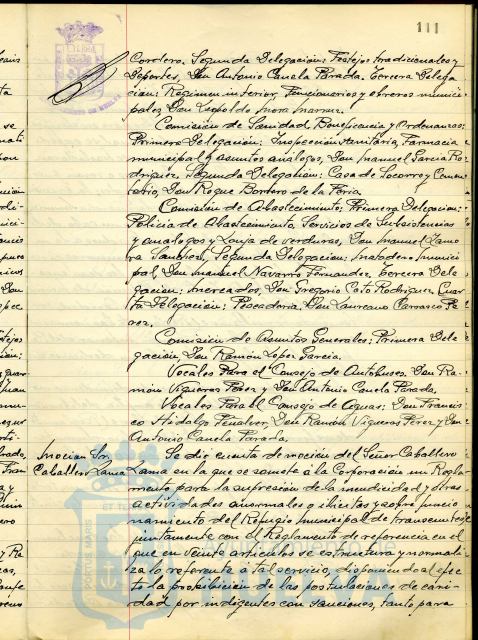 111
Cordero, Segunda Delegacion; Festejos tradicionales y
Deportes, Don Antonio Canela Parada. Tercera Delega
cion: Regimen interior, Funcionarios y obreros munici
pales, Don Leopoldo Mora
Comision de Sanidad, Beneficencia y Ordenanzas;
Primera Delegacion: Inspeccion Sanitaria, Farmacia
municipal y asuntos analogos, Don Manuel Garcia Ro
driguez. Segunda Delegacion: Casa de Socorro y Cemen
terio, Don Roque Bordero de la Feria
Comision de Abastecimiento; Primera Delegacion;
Policia de Abastecimiento, Servicios de Subsistencias
y analogos y Lonja de verduras, Don Manuel Lamo
ra Sanchos, Segunda Delegacion: Matadero Munici
pal, Don Manuel Navarro Fernandez. Tercera Dele
gacion; Mercados, Don Gregorio Coto Rodriguez. Cuar
ta Delegacion: Pescaderia, Don Laureano Carrasco Pe
rez.
Comision de Asuntos Generales; Primera Dele
gacion, Don Ramon Lopez Garcia.
Vocales Para el Consejo de Autobuses. Don Ra
mon Vigueras Perez y Don Antonio Canela Parada.
Vocales Para el Consejo de Aguas; Don Francis
co Hidalgo Peñalver, Don Ramón Vigueras Perez y Don
Antonio Canela Parada.
Mocion Sr.
Caballero Lama
Se dio cuenta de mocion del Señor Caballero
Lama en la que se somete á la Corporacion un Regla
mento para la supresion de la mendicidad y otras
actividades anormales e ilicitas y sobre funcio
namiento del Refugio Municipal de transeuntes
juntamente con el Reglamento de referencia en el
que en veinte articulos se estructura y normali
za lo referente á tal servicio, disponiendo al efec
to la prohibicion de las postulaciones de cari
dad por indigentes con sanciones, tanto para
PORTUS MARIS
ET TE
HUELVA